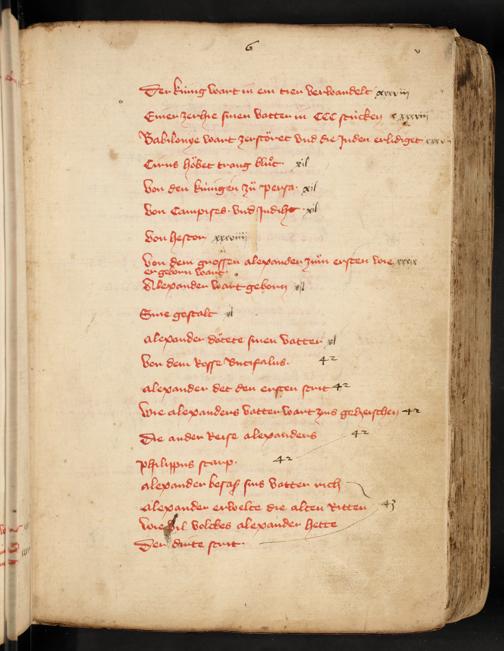 6
v
Der kúnig wart in ein tier verwandelt xxxviij
Einer zerhie sinen vatter in CCC stúcken xxxviij
Babilonye wart zerstöret vnd die Juden erlidiget
Cirus höbet trang blůt xil
Von den kúnigen zů persa. xil
Von Campises vnd Judiht xil
Von hester xxxviiij
Von dem grossen alexander zům ersten wie
er geborn wart
Alexander wart geborn xl
Sine gestalt xl
Alexander dötete sinen vatter xl
Von dem Rosse Bucifalus. 42
Alexander det den ersten strit 42
Wie alexanders vatter wart zins geheischen 42
Die ander Reise alexanders 42
Philippus starp. 42
Alexander besass sins vatter rich
Alexander erwelte die alten Ritter 43
Wie vil volckes alexander hette
Der dirte strit.